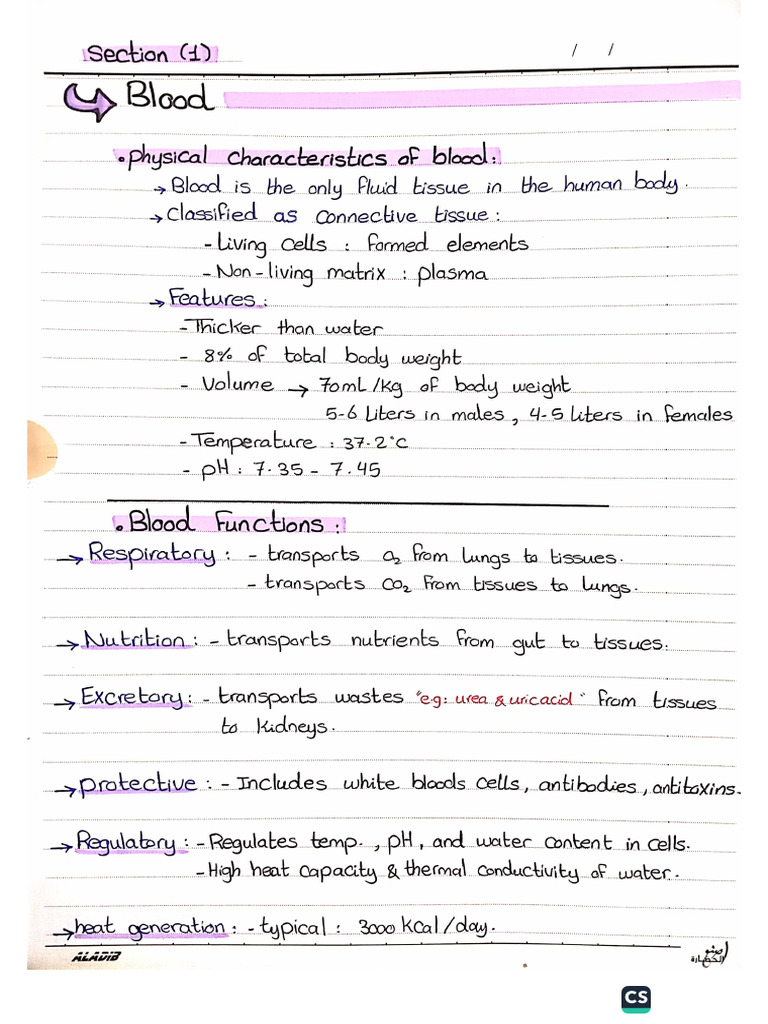 Section (1) / /
Blood
• physical characteristics of blood:
→ Blood is the only fluid tissue in the human body.
→ Classified as connective tissue:
- Living cells : formed elements
- Non-living matrix : plasma
→ Features:
- Thicker than water
- 8% of total body weight
- Volume → 70mL/Kg of body weight
5-6 Liters in males, 4-5 liters in females
- Temperature : 37.2°C
- pH: 7.35 - 7.45
• Blood Functions:
→ Respiratory: - transports O2 from lungs to tissues.
- transports CO2 from tissues to lungs.
→ Nutrition: - transports nutrients from gut to tissues.
→ Excretory: - transports wastes "e.g: urea & uric acid" from tissues
to kidneys.
→ protective: - Includes white bloods cells, antibodies, antitoxins.
→ Regulatory: - Regulates temp., pH, and water content in cells.
- High heat capacity & thermal conductivity of water.
→ heat generation: - typical: 3000 Kcal/day.
ALADIB
CS